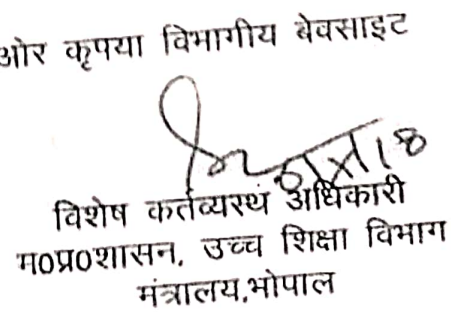 ओर कृपया विभागीय बेवसाइट
विशेष कर्तव्यस्थ अधिकारी
म०प्र०शासन, उच्च शिक्षा विभाग
मंत्रालय,भोपाल